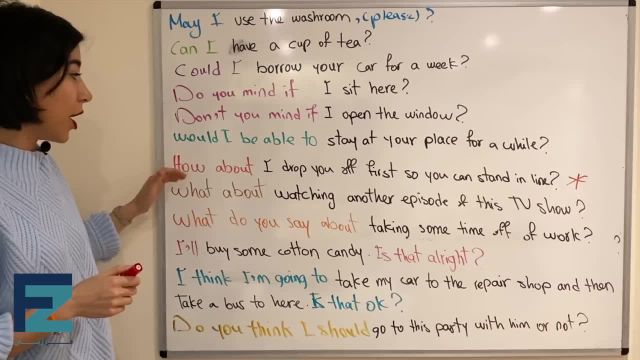 May I use the washroom, (please)?
Can I have a cup of tea?
Could I borrow your car for a week?
Do you mind if I sit here?
Don't you mind if I open the window?
would I be able to stay at your place for a while?
How about I drop you off first so you can stand in line? *
What about watching another episode of this TV show?
What do you say about taking some time off of work?
I'll buy some cotton candy. Is that alright? ?
I think I'm going to take my car to the repair shop and then
take a bus to here. Is that ok?
Do you think I should go to this party with him or not?
EZ